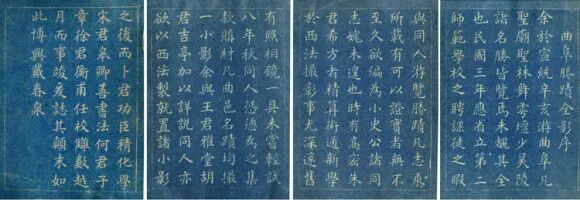 曲阜勝蹟全影序
余於宣統辛亥游曲阜凡
聖廟聖林舞雩壇少昊陵
諸名勝皆覽焉未覩其全
也民國三年應省立第二
師範學校之聘課徒之暇
與同人游覽勝蹟凡志乘
所載有可以證實者無不
至久欲編為小史公諸同
志媿未逮也時有高密朱
君者精算術通新學
於西法撮影事尤深遠舊
有照相鏡一具未嘗輕試
八年秋同人慫恿為之集
款購材凡曲邑名蹟均撮
一小影余與王君雅堂胡
君吉亭加以詳說同人亦
欲以西法製就置諸小影
之後而卜君功臣精化學
宋君皋卿善書法何君子
章徐君衡甫任校讎數越
月而事竣爰誌其顛末如
此博興戴春泉